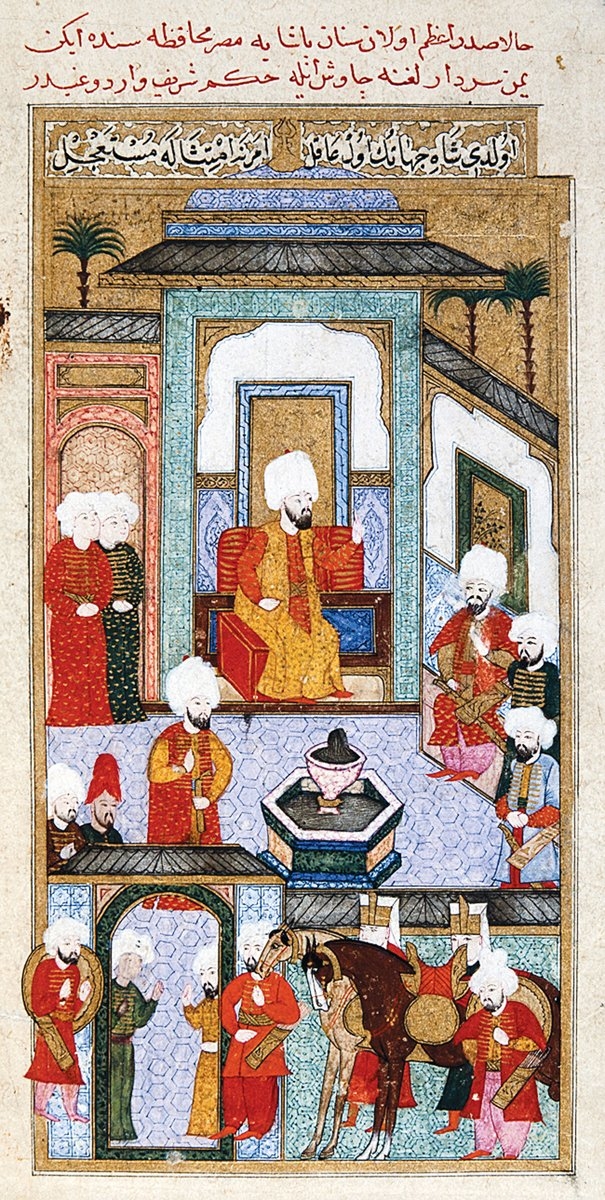 حالا صدر اعظم اولان سنان پاشا یه مصر محافظه سنده ایکن
یمن سردارلغنه چاوش ایله حکم شریف واردوغیدر
اولدی شاه جهانك اول عاقل امرنه امتثاله مستعجل